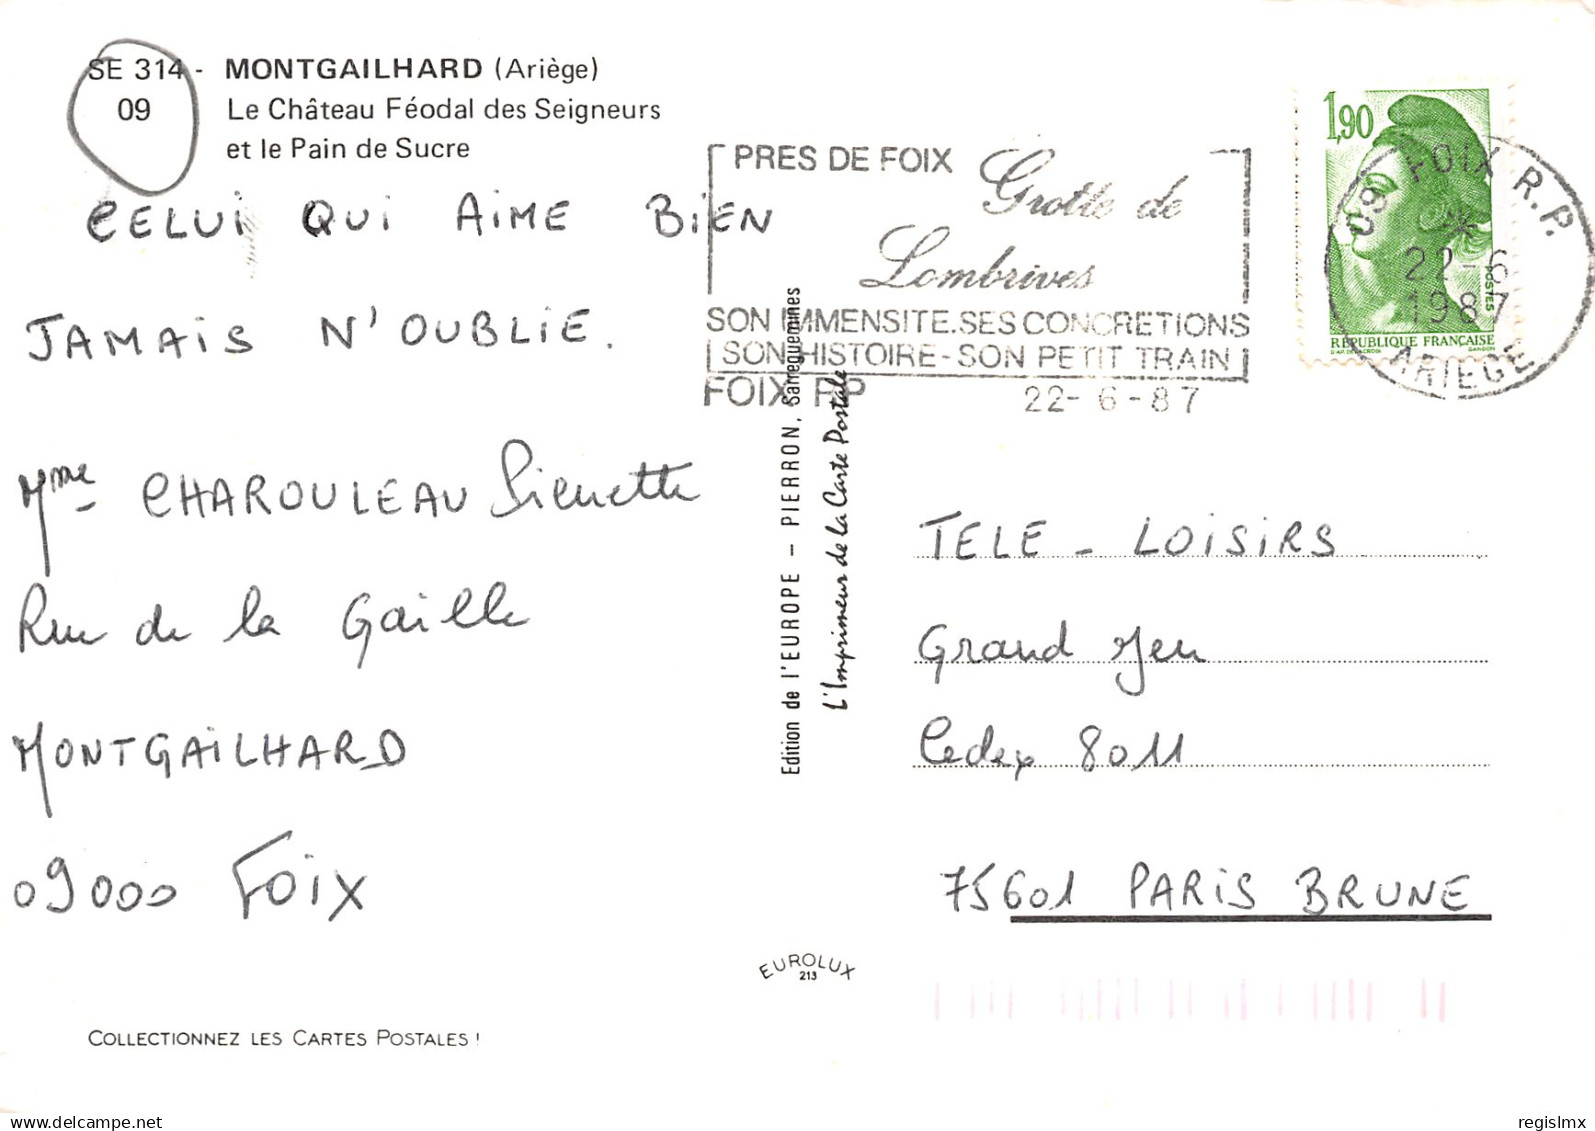 SE 314 - MONTGAILHARD (Ariège)
09 Le Château Féodal des Seigneurs
et le Pain de Sucre
CELUI QUI AIME BIEN
JAMAIS N'OUBLIE.
Mme CHAROULEAU Pierrette
Rue de la Gaille
MONTGAILHARD
09000 FOIX
COLLECTIONNEZ LES CARTES POSTALES !
PRES DE FOIX Grotte de
Lombrives
SON IMMENSITE. SES CONCRETIONS
SON HISTOIRE - SON PETIT TRAIN
FOIX RP 22-6-87
1,90
POSTES
RÉPUBLIQUE FRANÇAISE
D'AP. DELACROIX GANDON
09 FOIX R.P.
22-6
1987
ARIEGE
Edition de l'EUROPE - PIERRON, Sarreguemines
L'Imprimeur de la Carte Postale
TELE - LOISIRS
Grand Jeu
Cedex 8011
75601 PARIS BRUNE
EUROLUX
213
www.delcampe.net
regislmx